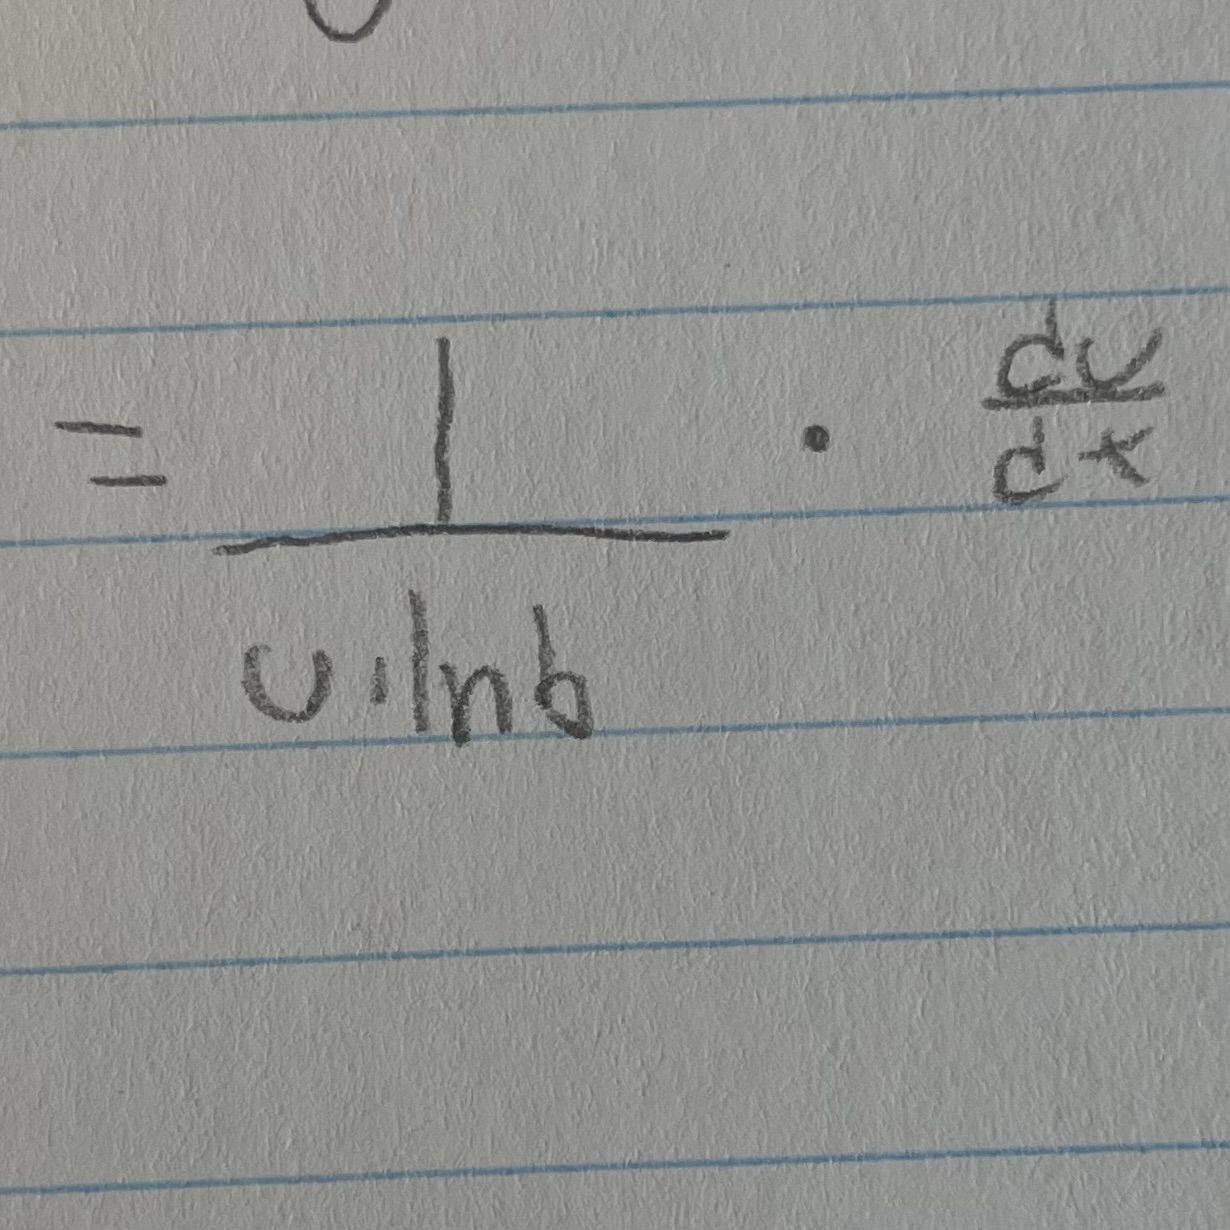 = 1 / (u · ln b) · du/dx